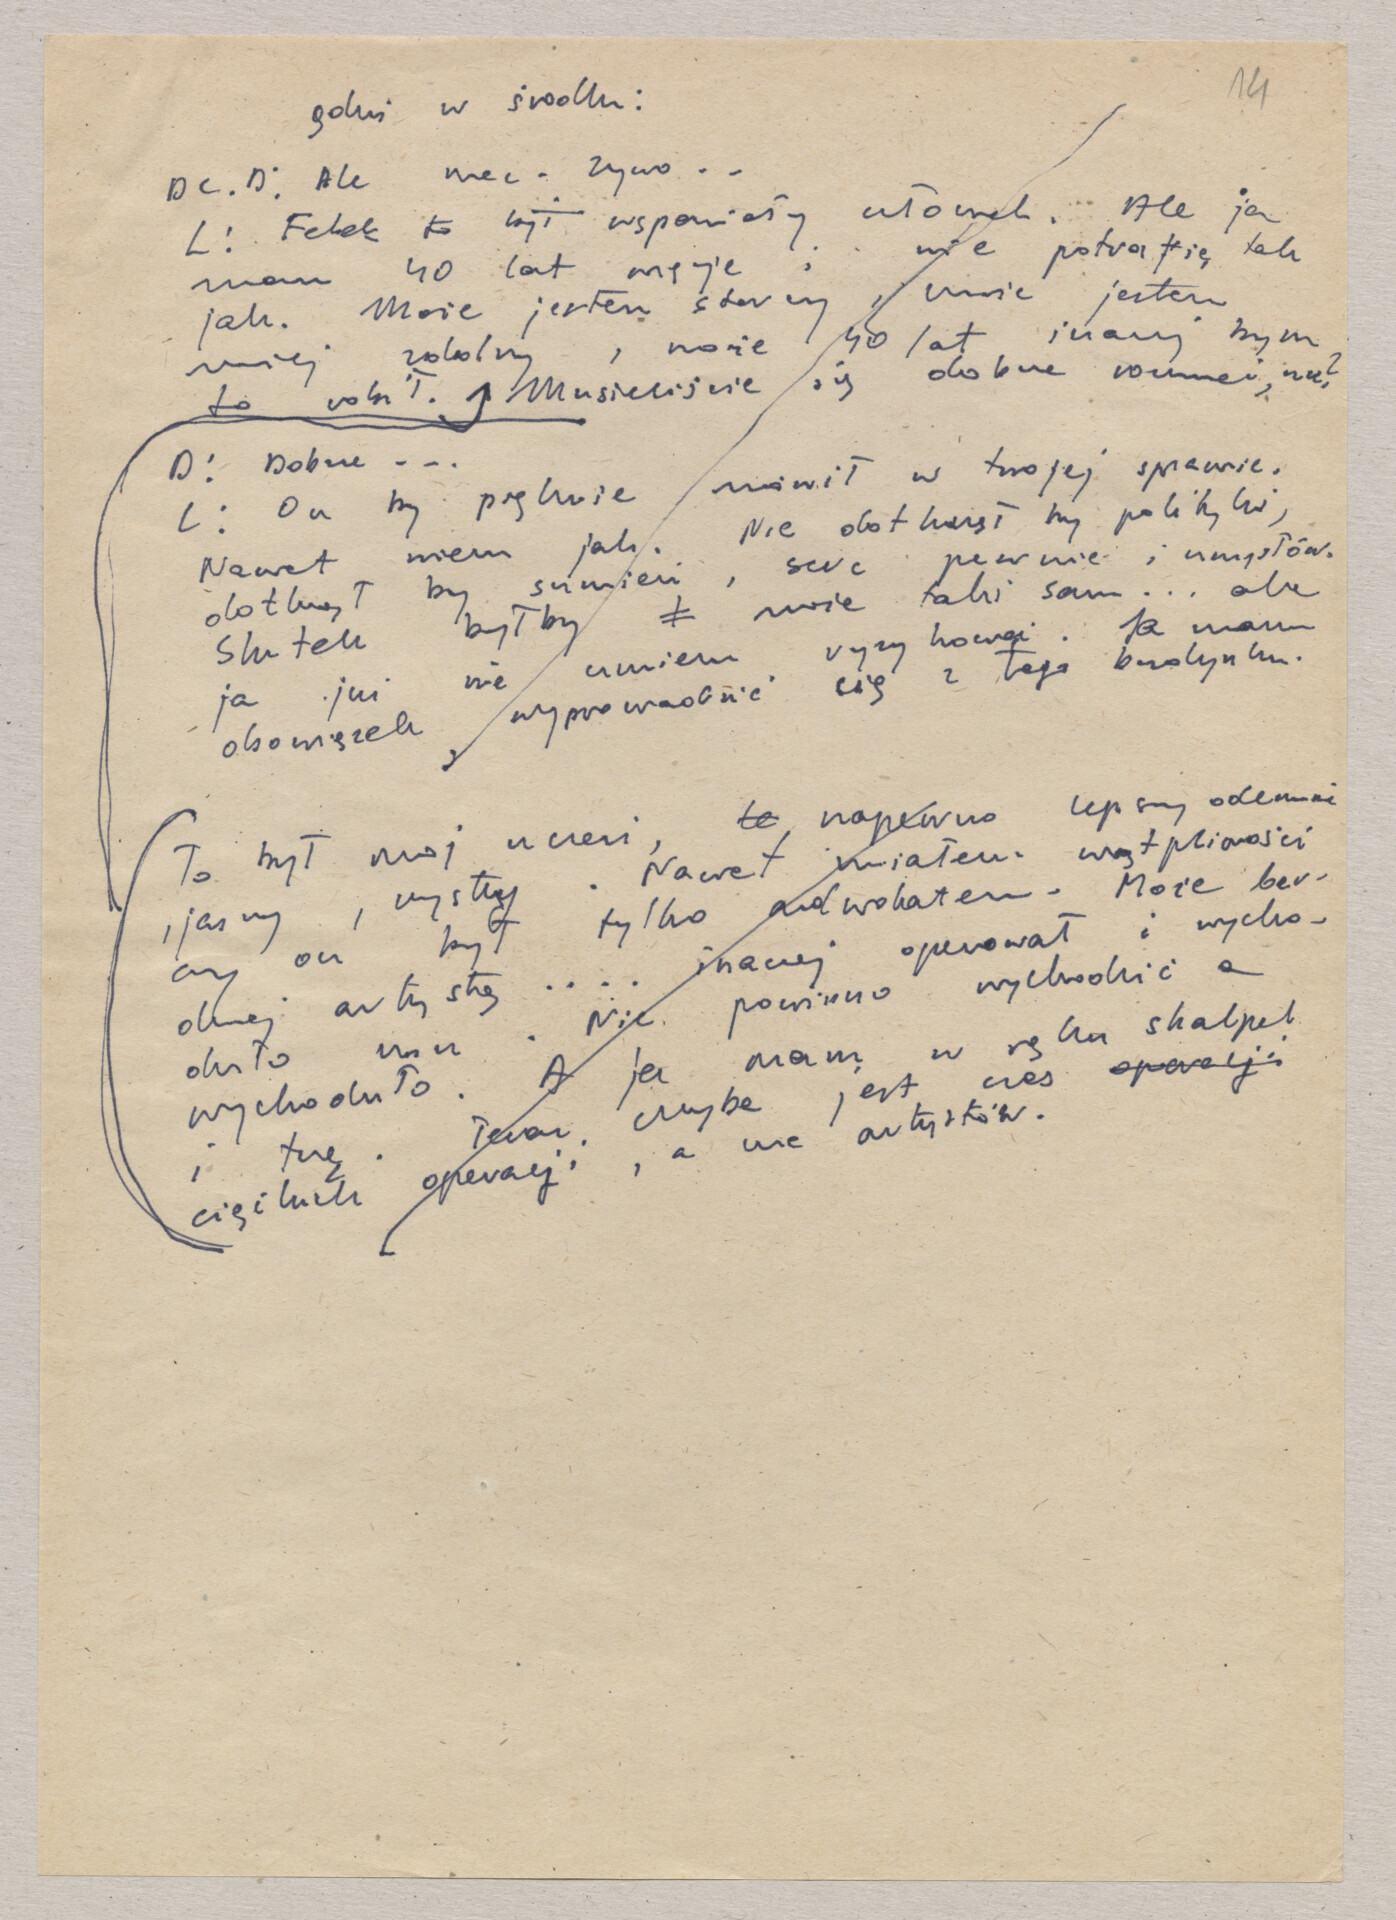 14
gdzieś w środku:
DC. D: Ale mec. Zyro . .
L: Felek to był wspaniały człowiek. Ale ja
mam 40 lat więcej i nie potrafię tak
jak. Może jestem starszy, może jestem
mniej zdolny, może 40 lat inaczej bym
to robił. Musieliście się dobrze rozumieć, nie?
D: Dobrze - - .
L: On by pięknie mówił w twojej sprawie.
Nawet wiem jak. Nie dotknął by polityki,
dotknął by sumień, serc pewnie i umysłów.
Skutek byłby może taki sam... ale
ja już nie umiem ryzykować. Ja mam
obowiązek wyprowadzić cię z tego budynku.
To był mój uczeń, napewno lepszy odemnie
, jasny, czysty. Nawet miałem wątpliwości
czy on był tylko adwokatem. Może bar-
dziej artystą .... inaczej operował i wycho-
dziło mu. Nie powinno wychodzić a
wychodziło. A ja mam w ręku skalpel
i tnę. Teraz chyba jest czas operacji
ciężkich operacji, a nie artystów.